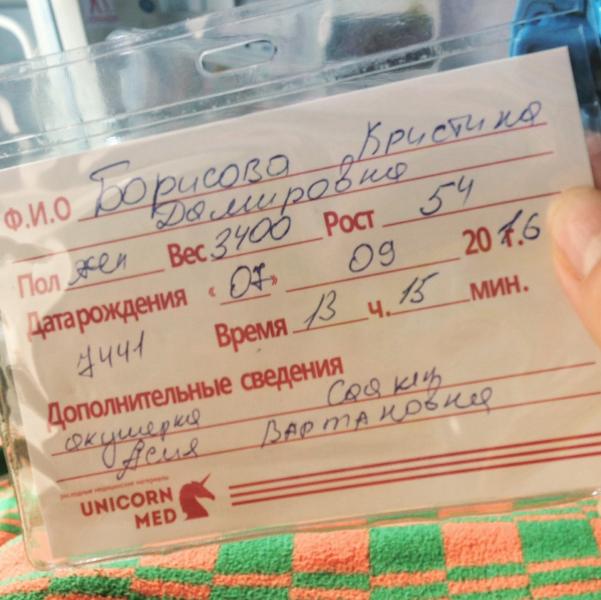 Ф.И.О Борисова Кристина
Дамировна
Пол жен Вес 3400 Рост 54
Дата рождения « 07 » 09 2016
7441 Время 13 ч. 15 мин.
Дополнительные сведения
акушерка
Асия Вартановна
UNICORN
MED